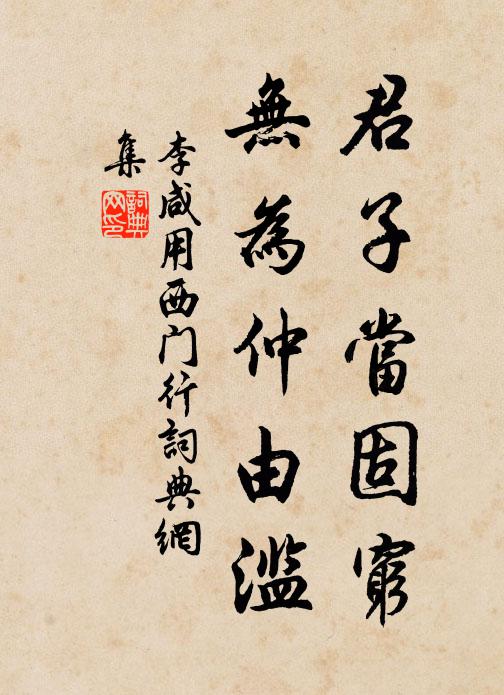 君子當固窮
無為仲由濫
李咸用西门行詞典網
集
詞典
网印